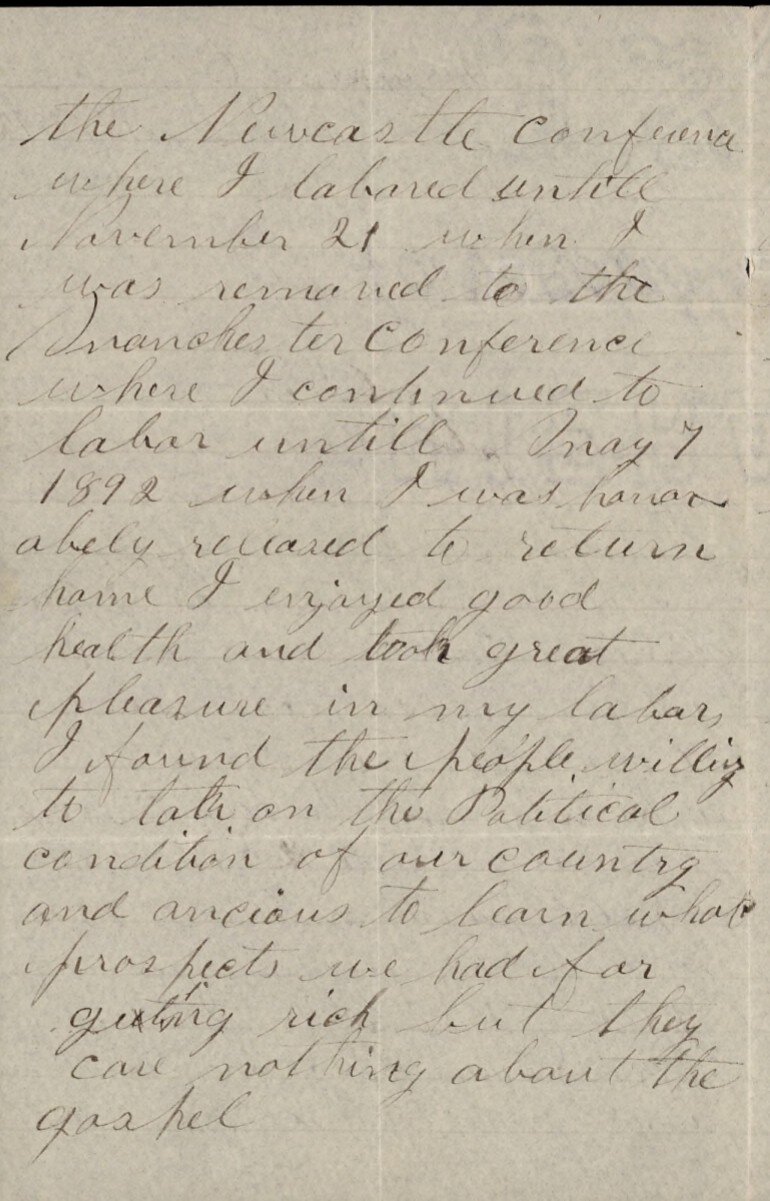 the Newcastle conference
where I labored untill
November 21 when I
was removed to the
Manchester Conference
where I continued to
labor untill May 7
1892 when I was honor
abely released to return
home I enjoyed good
health and took great
pleasure in my labors
I found the people willing
to talk on the Political
condition of our country
and ancious to learn what
prospects we had for
getting rich but they
care nothing about the
gospel